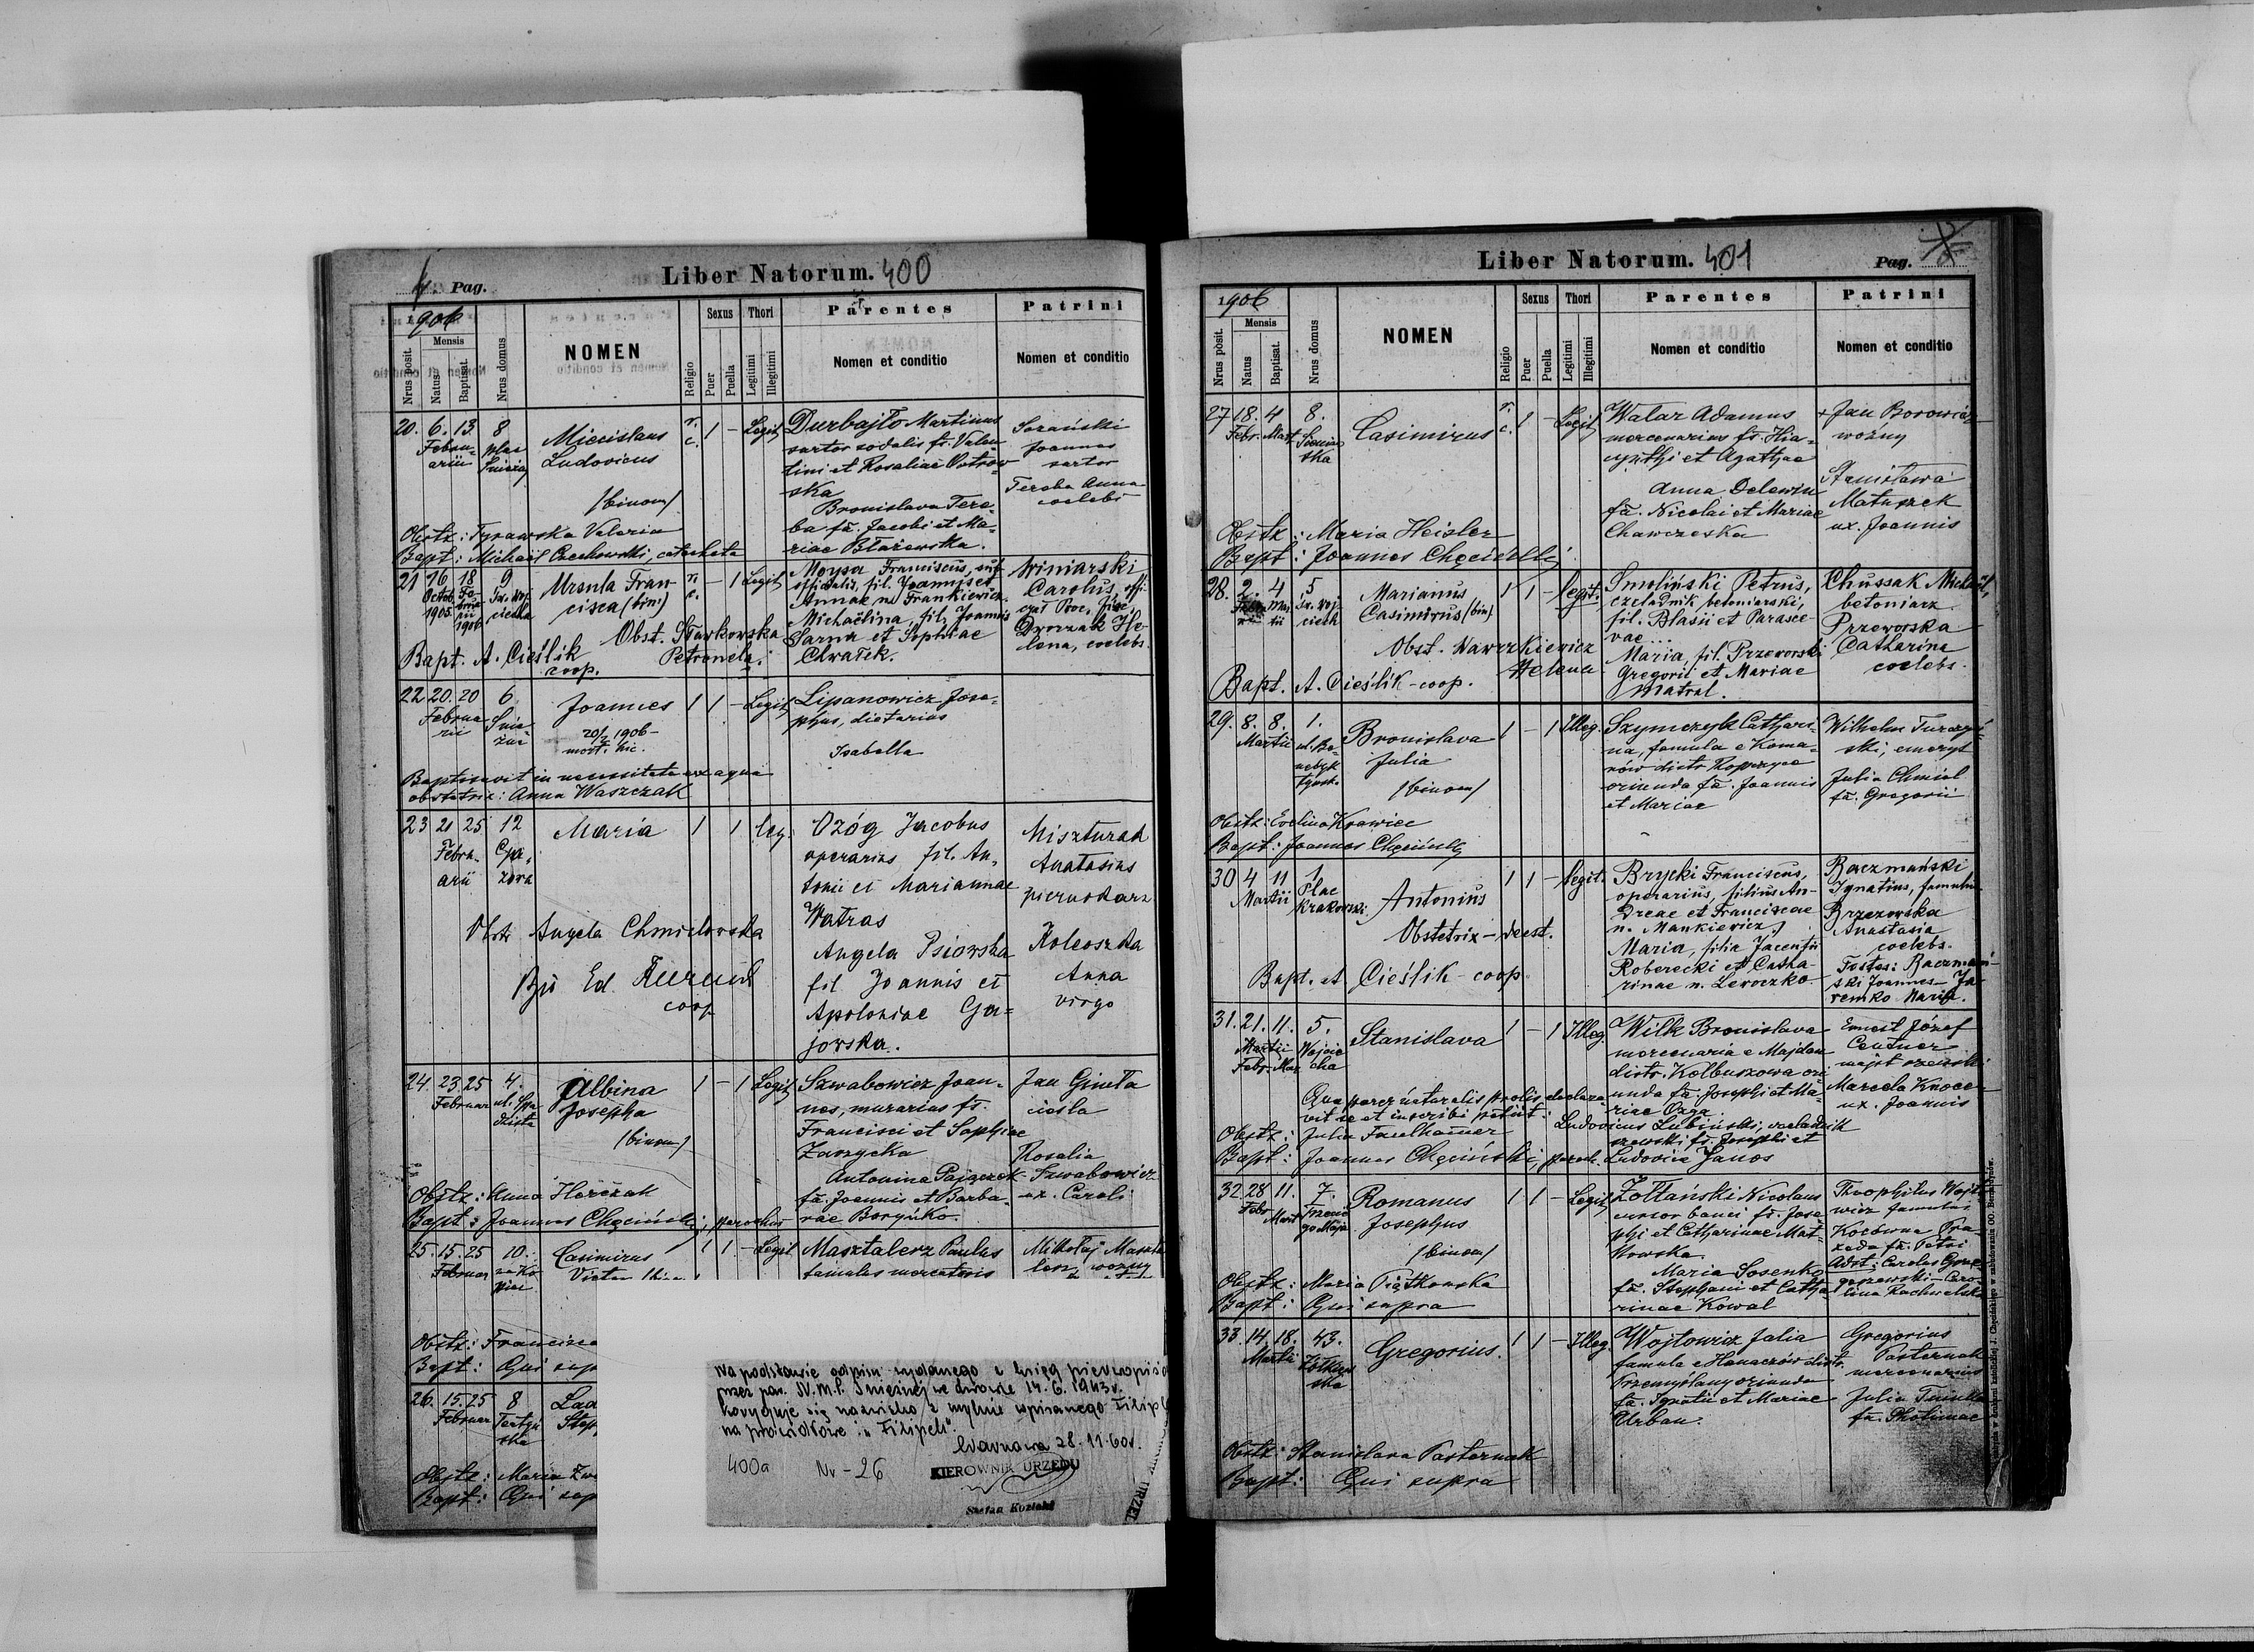 4. Pag.
Liber Natorum. 400
1906
Mensis
Nrus posit.
Natus
Baptisat.
Nrus domus
NOMEN
Religio
Sexus
Puer
Puella
Thori
Legitimi
Illegitimi
Parentes
Nomen et conditio
Patrini
Nomen et conditio
20. 6. 13. 8
Februarii
plac
Miecislaus
Ludovicus
/binom/
r. c. 1 - Legit
Durbajło Martinus
sartor sodalis fs. Valen-
tini et Rosaliae Ostrow-
ska
Bronislava Tere-
ba fa. Jacobi et Ma-
riae Błażewska.
Joannes
sartor
Tereba Anna
coelebs
Obstx: Tyrawska Valeria
Bapt: Michael Czechowski, catecheta
21 16 18 9
Octob. Februarii
1905. 1906
Św. Wojciecha
Ursula Fran-
cisca (bin.)
r. c. - 1 Legit
Moysa Franciscus, sub-
officialis, fil. Joannis et
Annae n. Frankiewicz.
Michaëlina, fil. Joannis
Sarna et Sophiae
Chwałek.
Winiarski
Carolus, offi-
Dworzak He-
lena, coelebs.
Obst. Starkowska
Petronela.
Bapt. A. Cieślik
coop.
22 20. 20 6
Februarii
Joannes
20/2 1906 -
mort. hic.
1 1 - Legit
Lipanowicz Jose-
phus, dietarius
Isabella
Baptisavit in necessitate ex aqua
obstetrix: Anna Waszczak
23 21 25 12
Februarii
Maria
1 1 leg.
Ozóg Jacobus
operarius fil. An-
tonii et Mariannae
Watras
Angela Psiorska
fil Joannis et
Apoloniae Ga-
jorska.
Miszturak
Anatasius
piernikarz
Koleoszka
Anna
virgo
Obstx Angela Chmielowska
coop
24. 23. 25 4.
Februar
Albina
Josepha
/binom/
1 - 1 Legit
Szwabowicz Joan-
nes, murarius fs.
Francisci et Sophiae
Zarzycka
Antonina Pajączek
fa. Joannis et Barba-
rae Boryńko.
Jan Gineta
cieśla
Rosalia
Szwabowicz
ux. Caroli
Obstx: Anna Horczak
Bapt: Joannes Chęciński, parochus
25. 15. 25 10.
Februar
Casimirus
Victor
1 1 - Legit
Masztalerz Paulus
famulus mercatoris
Mikołaj Maszta
lerz, woźny
Obstx: Francisca
Bapt: Qui sup
26. 15. 25 8
Februar
Lad
Step
Obstx: Maria
Bapt: Qui sup
Na podstawie odpisu wydanego z księg pierwopisu
przez par. N.M.P. Śnieżnej we Lwowie 14. 6. 1943 r.
koryguje się nazwisko z mylnie wpisanego Filipl
na prawidłowe: "Filipeli".
Warszawa 28. 11. 60r.
400a Nr - 26
KIEROWNIK URZĘDU
Stefan Kozicki
Liber Natorum. 401
Pag.
1906
Mensis
Nrus posit.
Natus
Baptisat.
Nrus domus
NOMEN
Religio
Sexus
Puer
Puella
Thori
Legitimi
Illegitimi
Parentes
Nomen et conditio
Patrini
Nomen et conditio
27 18. 4 8.
Febr. Mart
Casimirus
r. c. 1 - Legit
Watar Adamus
mercenarius fs. Hia-
cynthi et Agathae
Anna Delewin
fa. Nicolai et Mariae
Chawrzeska
+ Jan Borowicz
woźny
Stanisława
Matuszek
ux. Joannis
Obstx: Maria Heisler
Bapt: Joannes Chęciński
28. 2. 4 5
Martii
Św. Wojciech
Marianus
Casimirus (bin)
1 1 - legit.
Smoliński Petrus,
czeladnik betoniarski,
fil. Blasii et Parasce-
vae...
Maria, fil. Przeworski
Gregorii et Mariae
Matral.
Chussak Michaël,
betoniarz
Przeworska
Catharina
coelebs.
Obst. Wawrzkiewicz
Helena
Bapt. A. Cieślik - coop.
29. 8. 8. 1.
Martii
Bronislava
Julia
/binom/
1 - 1 Illeg.
Szymczyk Cathari-
na, famula e Koma-
rów distr. Ropczyce
oriunda fa. Joannis
et Mariae
Wilhelm Turczyń-
ski, emeryt
Julia Chmiel
fa. Gregorii
Obstx: Evelina Krawiec
Bapt: Joannes Chęciński
30 4 11 1
Martii
Plac
Krakowski
Antonius
1 1 - legit.
Brycki Franciscus,
operarius, filius An-
dreae et Franciscae
n. Mankiewicz.
Maria, filia Jacentii
Roberecki et Catha-
rinae n. Leroczko.
Raczmański
Ignatius, famulus
Brzezowska
Anastasia
coelebs.
Testes: Raczmań-
ski Joannes - Ja-
remko Maria.
Obstetrix - deest.
Bapt. et Cieślik - coop.
31. 21. 11. 5.
Martii
Febr. Mar.
Wojciecha
Stanislava
1 - 1 Illeg
Wilk Bronislava
mercenaria e Majdan
distr. Kolbuszowa ori-
unda fa. Josephi et Ma-
riae Ozga.
Ernest Józef
Centner
majst. rzeźnicki
Marcela Knocer
ux. Joannis
Qua pater naturalis prolis declara-
vit se et inscribi petiit:
Ludovicus Lubiński, czeladnik
szewski fs. Josephi et
Ludovica Janos
Obstx: Julia Faulhammer
Bapt: Joannes Chęciński, paroch.
32 28 11. 7.
Febr. Mart
Trzeciego Maja
Romanus
Josephus
/binom/
1 1 - Legit
Żołtański Nicolaus
cursor banci fs. Jose-
phi et Catharinae Mat-
kowska
Maria Sosenko
fa. Stephani et Catha-
rinae Kowal
Theophilus Wojto-
wicz famulus
fa. Petri
Adst: Carolus
lina Rachwelska
Obstx: Maria Piątkowska
Bapt: Qui supra
33. 14. 18. 43.
Martii
Żółkiewska
Gregorius.
1 1 - Illeg.
Wojtowicz Julia
famula e Hanaczów distr.
Przemyślany oriunda
fa. Ignatii et Mariae
Urban.
Gregorius
Pasternak
mercenarius
Julia
fa. Photinae
Obstx: Stanislava Pasternak
Bapt: Qui supra